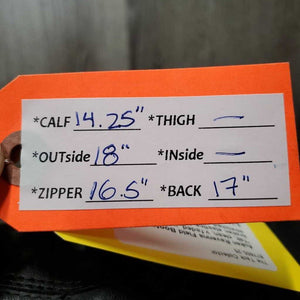 *CALF 14.25" *THIGH —
*OUTside 18" *INside —
*ZIPPER 16.5" *BACK 17"